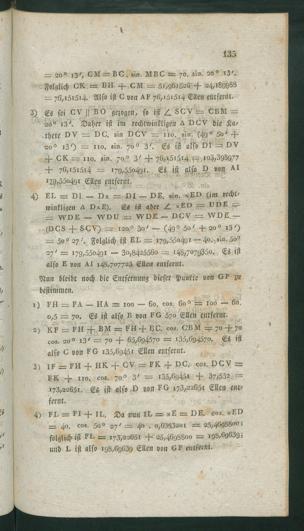 135
= 20° 13′, CM = BC. sin. MBC = 70. sin. 20° 13′.
Folglich CK = BH + CM = 51,961526 + 24,189988
= 76,151514. Also ist C von AF 76,151514 Ellen entfernt.
3) Es sei CV || BO gezogen, so ist ∠ SCV = CBM =
20° 13′. Daher ist im rechtwinkligen Δ DCV die Ka-
thete DV = DC. sin DCV = 110. sin. (49° 50′ +
20° 13′) = 110, sin. 70° 3′. Es ist also DI = DV
+ CK = 110. sin. 70° 3′ + 76,151514 = 103,398977
+ 76,151514 = 179,550491. Es ist also D von AI
179,550491 Ellen entfernt.
4) EL = DI — Dx = DI — DE. sin. xED (im recht-
winkligen Δ DxE). Es ist aber ∠ xED = UDE =
= WDE — WDU = WDE — DCV = WDE —
(DCS + SCV) = 120° 30′ — (49° 50′ + 20° 13′)
= 50° 27′. Folglich ist EL = 179,550491 — 40. sin. 50°
27′ = 179,550491 — 30,8425560 = 148,7079350. Es ist
also E von AI 148,707723 Ellen entfernt.
Nun bleibt noch die Entfernung dieser Punkte von GF zu
bestimmen.
1) FH = FA — HA = 100 — 60. cos. 60° = 100 — 60.
0,5 = 70. Es ist also B von FG 570 Ellen entfernt.
2) KF = FH + BM = FH + BC. cos. CBM = 70 + 70
cos. 20° 13′ = 70 + 65,694570 = 135,694570. Es ist
also C von FG 135,69451 Ellen entfernt.
3) IF = FH + HK + CV = FK + DC. cos. DCV =
FK + 110. cos. 70° 3′ = 135,69451 + 37,532 =
173,22651. Es ist also D von FG 173,22651 Ellen ent-
fernt.
4) FL = FI + IL. Da nun IL = xE = DE. cos. xED
= 40. cos. 50° 27′ = 40 . 0,6367201 = 25,4698800;
folglich ist FL = 173,22651 + 25,4698800 = 198,69639;
und L ist also 198,69639 Ellen von GF entfernt.